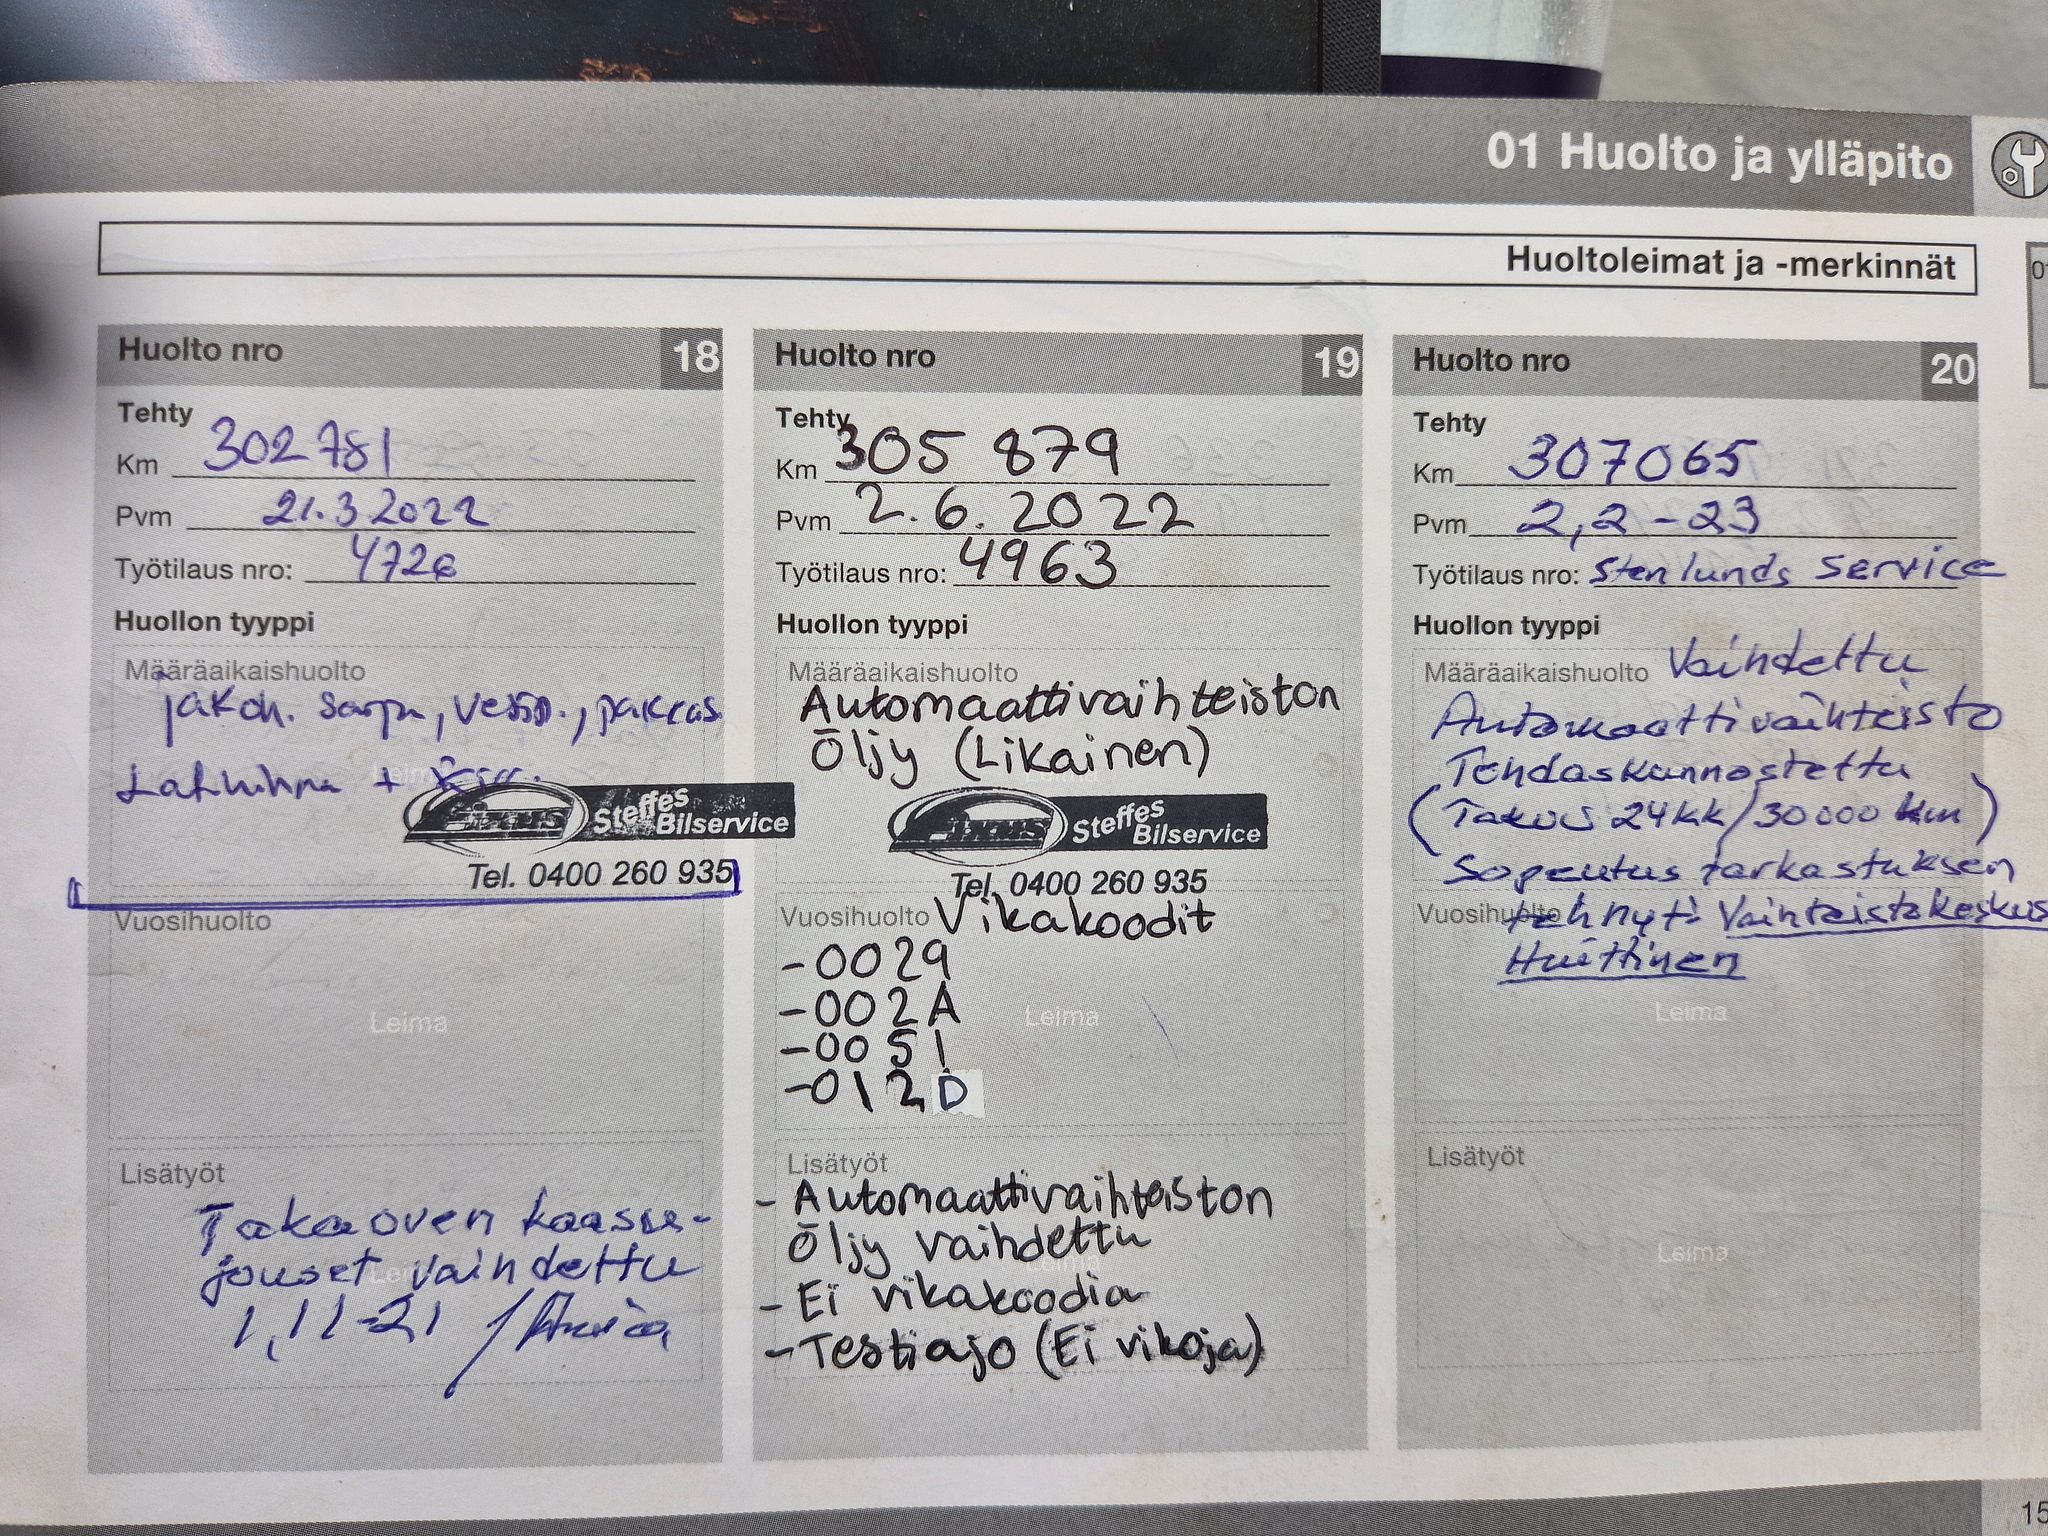 01 Huolto ja ylläpito
Huoltoleimat ja -merkinnät
01
Huolto nro 18
Tehty
Km 302781
Pvm 21.3 2022
Työtilaus nro: 4726
Huollon tyyppi
Määräaikaishuolto
jakoh. sarja, vesip., pakkas
Leima
Steffes
Bilservice
Tel. 0400 260 935
Vuosihuolto
Leima
Lisätyöt
Takaoven kaasu-
jouset vaihdettu
Leima
1,11-21
Huolto nro 19
Tehty
Km 305 879
Pvm 2.6.2022
Työtilaus nro: 4963
Huollon tyyppi
Määräaikaishuolto
Automaattivaihteiston
Öljy (Likainen)
Steffes
Bilservice
Tel. 0400 260 935
Vuosihuolto Vikakoodit
-0029
-002A
Leima
-0051
-012D
Lisätyöt
- Automaattivaihteiston
Öljy vaihdettu
Leima
- Ei vikakoodia
- Testiajo (Ei vikoja)
Huolto nro 20
Tehty
Km 307065
Pvm 2,2-23
Työtilaus nro: Stenlunds Service
Huollon tyyppi
Määräaikaishuolto Vaihdettu
Automaattivaihteisto
Tehdaskunnostettu
(Takuu 24kk/30000 km)
Sopeutus tarkastuksen
Vuosihuolto tehnyt: Vaihteistokeskus
Huittinen
Leima
Lisätyöt
Leima
15